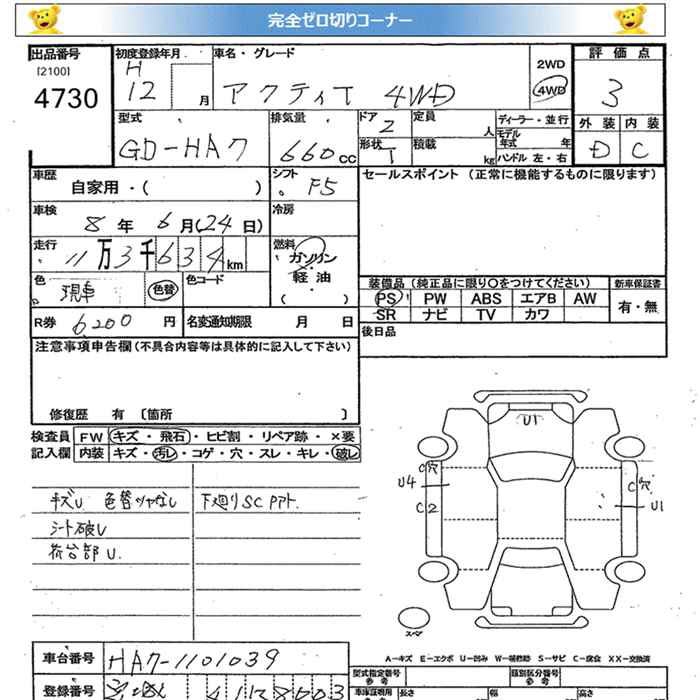 完全ゼロ切りコーナー
出品番号 初度登録年月 車名・グレード 2WD 評価点
[2100] H 4WD
4730 12 月 アクティT 4WD 3
型式 排気量 ドア 定員 人 ディーラー・並行 外装 内装
GD-HA7 660 CC 2 モデル年式 年 D C
形状 積載 kg ハンドル 左・右
車歴 シフト セールスポイント (正常に機能するものに限ります)
自家用・( ) F5
車検 冷房
8 年 6 月 (24 日)
走行 燃料
11 万 3 千 6 3 4 km ガソリン
色 色コード 軽油 装備品 (純正品に限り〇をつけてください) 新車保証書
現車 色替 ( ) PS PW ABS エアB AW 有・無
R券 6200 円 名変通知期限 月 日 SR ナビ TV カワ
後日品
注意事項申告欄 (不具合内容等は具体的に記入して下さい)
修復歴 有 〔箇所 〕
検査員 FW キズ・飛石・ヒビ割・リペア跡・×要
記入欄 内装 キズ・汚レ・コゲ・穴・スレ・キレ・破レ
キズU 色替ツヤなし 下廻りSC PPト.
シート破レ
荷台部U.
U1
C穴
U4
C2
C穴
U1
スペア
A-キズ E-エクボ U-凹み W-補修跡 S-サビ C-腐食 XX-交換済
車台番号 HA7-1101039 型式指定番号 参考 類別区分番号 参考
登録番号 車庫証明用 参考 長さ 幅 高さ